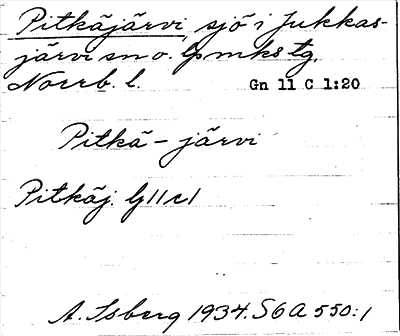 Pitkäjärvi, sjö i Jukkas-
järvi sn o. lpmks tg,
Norrb. l.
Gn 11 C 1:20
Pitkä-järvi
Pitkäj. lj 11 c 1
A. Isberg 1934. S6A 550:1